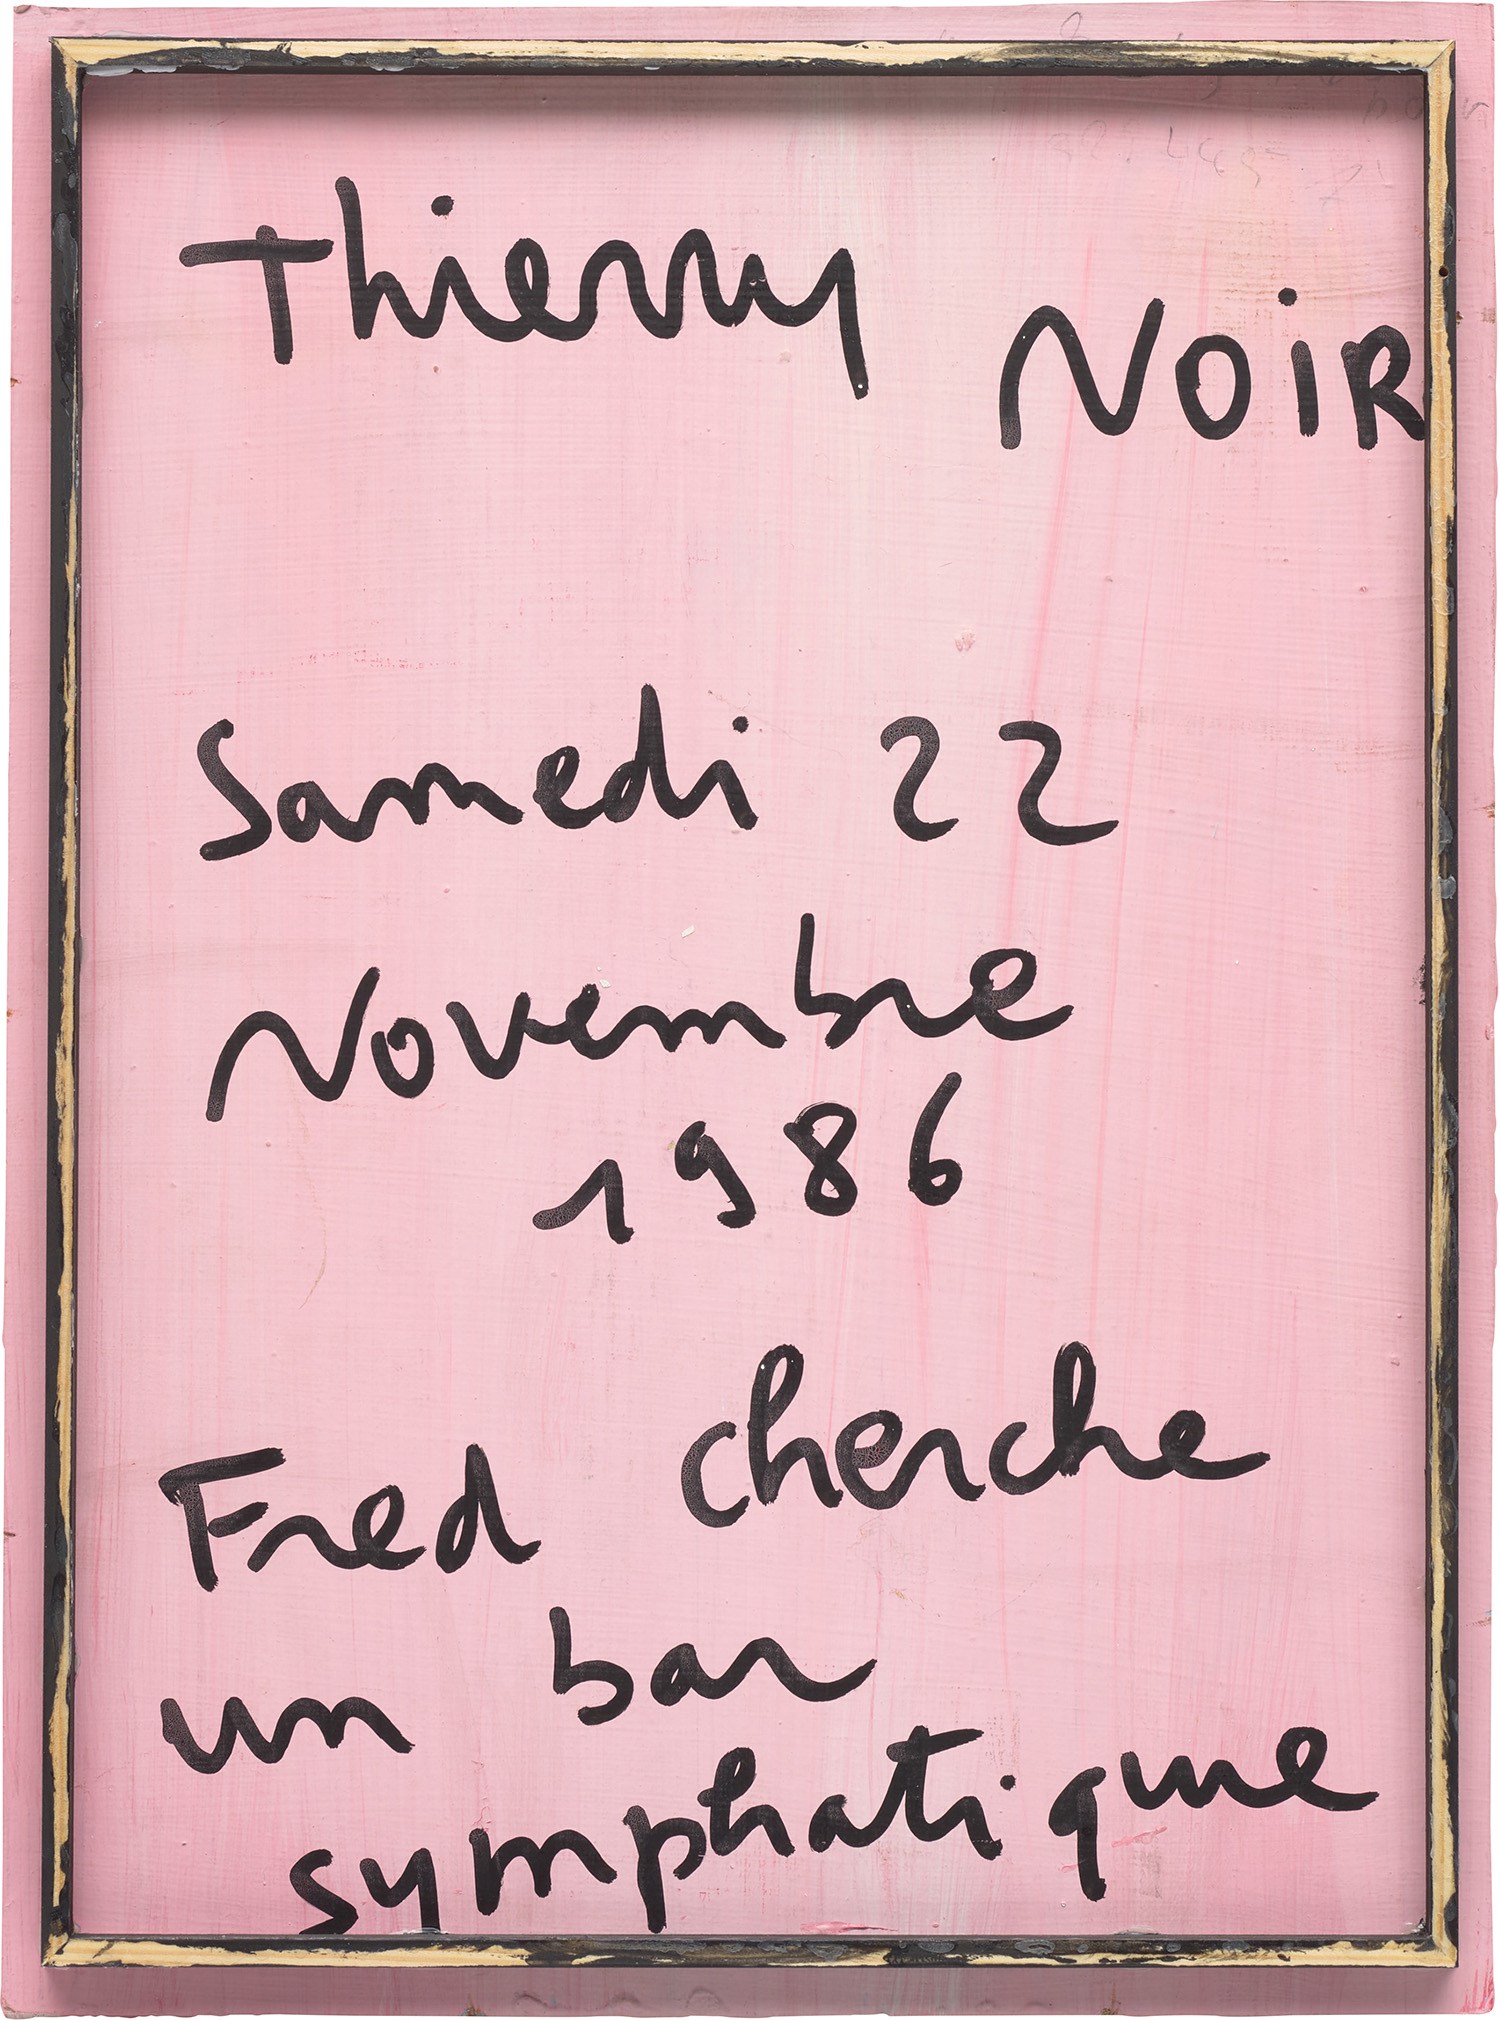 Thierry NoiR
Samedi 22
Novembre
1986
Fred cherche
un bar
symphatique